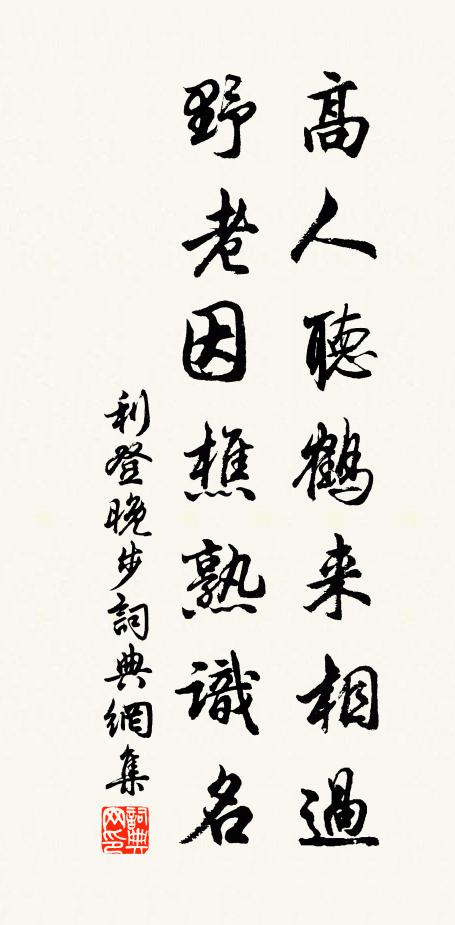 高人聽鶴来相過
野老因樵熟識名
利登晚步詞典網集
詞典网印